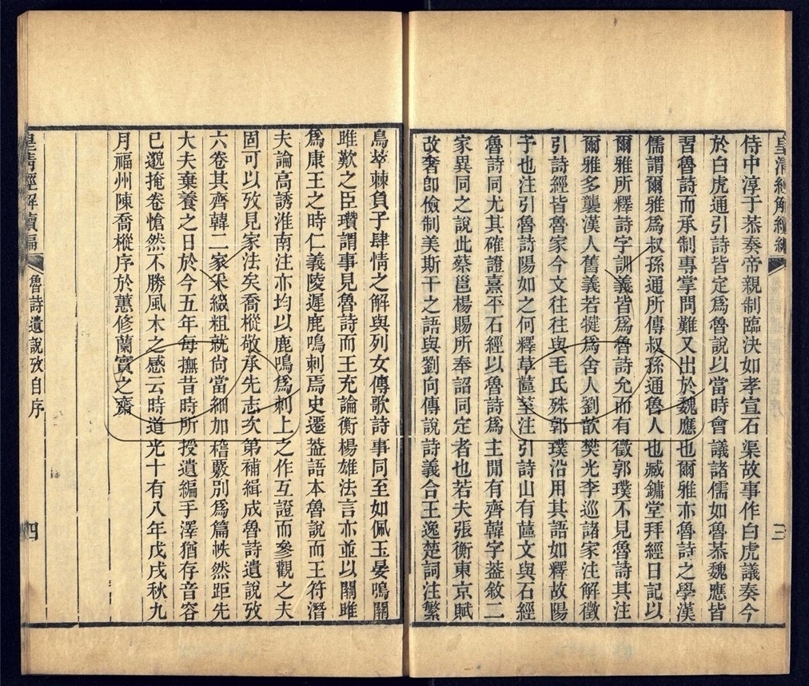 皇清經解續編
三
侍中淳于恭奏帝親制臨決如孝宣石渠故事作白虎議奏今
於白虎通引詩皆定爲魯說以當時會議諸儒如魯恭魏應皆
習魯詩而承制專掌問難又出於魏應也爾雅亦魯詩之學漢
儒謂爾雅爲叔孫通所傳叔孫通魯人也臧鏞堂拜經日記以
爾雅所釋詩字訓義皆爲魯詩允而有徵郭璞不見魯詩其注
爾雅多襲漢人舊義若犍爲舍人劉歆樊光李巡諸家注解徵
引詩經皆魯家今文往往與毛氏殊郭璞沿用其語如釋故陽
予也注引魯詩陽如之何釋草蓲荎注引詩山有蓲文與石經
魯詩同尤其確證熹平石經以魯詩爲主閒有齊韓字葢敘二
家異同之說此蔡邕楊賜所奉詔同定者也若夫張衡東京賦
改奢卽儉制美斯干之語與劉向傳說詩義合王逸楚詞注繁
鳥萃棘負子肆情之解與列女傳歌詩事同至如佩玉晏鳴關
雎歎之臣瓚謂事見魯詩而王充論衡楊雄法言亦並以關雎
爲康王之時仁義陵遲鹿鳴刺焉史遷葢語本魯說而王符潛
夫論高誘淮南注亦均以鹿鳴爲刺上之作互證而參觀之夫
固可以攷見家法矣喬樅敬承先志次第補緝成魯詩遺說攷
六卷其齊韓二家采綴粗就尙當細加稽覈別爲篇帙然距先
大夫棄養之日於今五年每撫昔時所授遺編手澤猶存音容
已邈掩卷愴然不勝風木之感云時道光十有八年戊戌秋九
月福州陳喬樅序於蕙修蘭實之齋
皇清經解續編
魯詩遺說攷自序
四